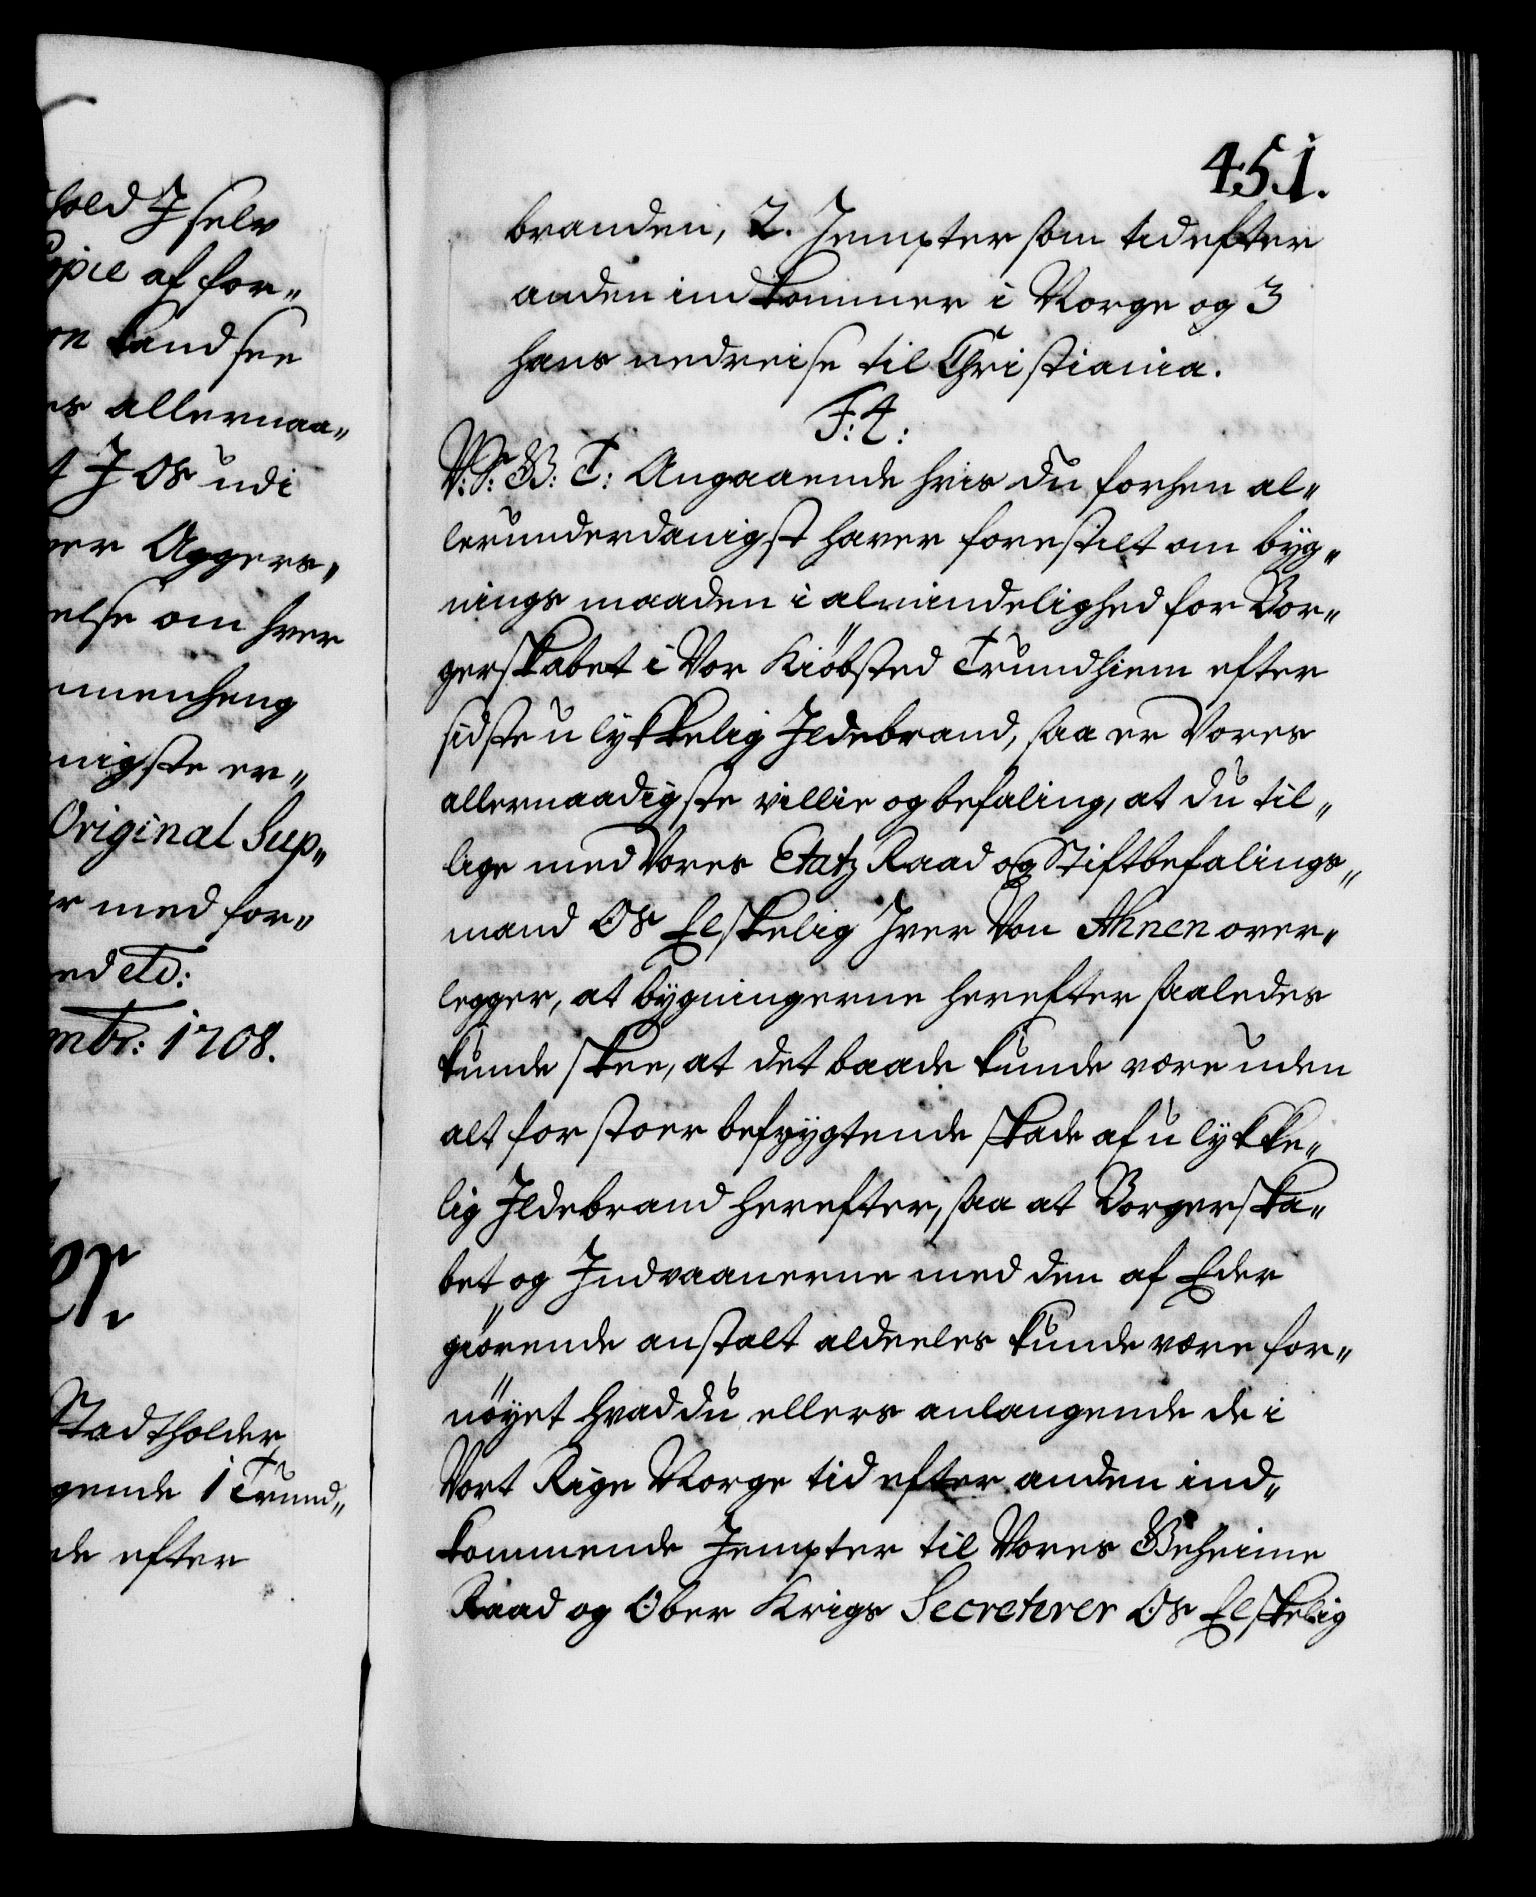 hold I selv
Copie af for„
kand see
allernaa„
I Os udi
Aggers„
else om hver
menheng
nigste er„
Original Sup„
med for„
ed etc:
mbr: 1708.
Stadtholder
gende 1 Trund„
de efter
451.
branden, 2. Jempter som tid efter
anden ind kommer i Norge og 3
hans nedreise til Christiania.
F: 4:
V: S: G: T: Angaaende hvis du forhen al„
lerunderdanigst haver forestilt om byg„
nings maaden i almindelighed for Bor„
gerskabet i Vor Kiöbsted Trundhiem efter
sidste u lykkelig Ildebrand, saa er Vores
allernaadigste villie og befaling, at du til„
lige med Vores Etatz Raad og Stiftbefalings„
mand Os Elskelig Iver Von Ahnen over„
legger, at bygningerne herefter saaledes
kunde skee, at det baade kunde være uden
alt for stoer befrygtende skade af u lykke„
lig Ildebrand herefter, saa at Borgerska„
bet og Indvaanerne med den af Eder
giörende anstalt aldeeles kunde være for„
nöyet hvad du ellers anlangende de i
Vort Rige Norge tid efter anden ind„
kommende Jempter til Vores Geheime
Raad og Ober Krigs Secreterer Os Elskelig